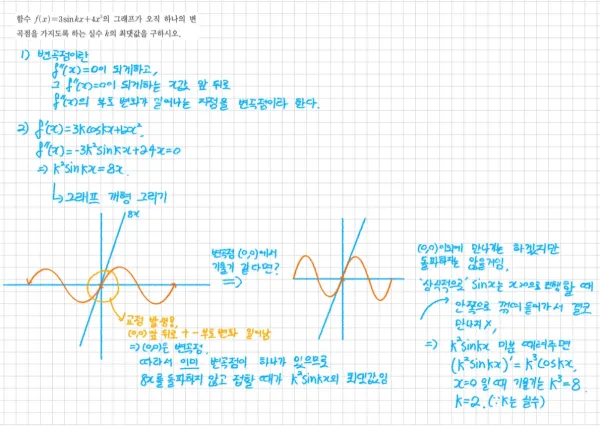 함수 f(x)=3sinkx+4x³의 그래프가 오직 하나의 변
곡점을 가지도록 하는 실수 k의 최댓값을 구하시오.
1) 변곡점이란
f''(x)=0이 되게하고,
그 f''(x)=0이 되게하는 x값 앞 뒤로
f''(x)의 부호 변화가 일어나는 지점을 변곡점이라 한다.
2) f'(x)=3kcoskx+12x²,
f''(x)=-3k²sinkx+24x=0
⇒ k²sinkx=8x.
↳그래프 개형 그리기
8x
변곡점 (0,0)에서
기울기 같다면?
⇒
교점 발생,
(0,0)앞 뒤로 + - 부호변화 일어남
⇒(0,0)은 변곡점.
따라서 이미 변곡점이 하나가 있으므로
8x를 돌파하지 않고 접할 때가 k²sinkx의 최댓값임
(0,0)이외에 만나기는 하겠지만
돌파하지는 않을거임.
"상식적으로" sinx는 x>0으로 진행할 때
안쪽으로 꺾이 들어가서 결코
만나지 X,
⇒ k²sinkx 미분 때려주면
(k²sinkx)'=k³coskx,
x=0일 때 기울기는 k³=8.
k=2. (∵k는 실수)